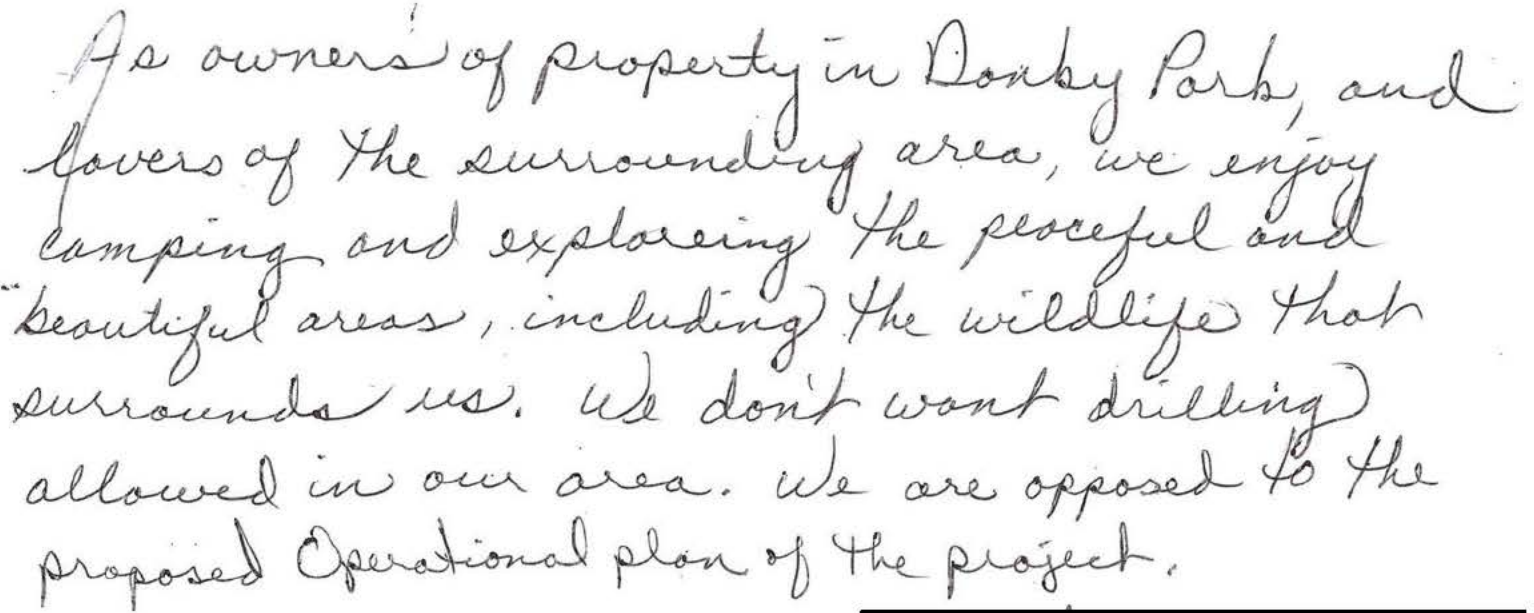 As owners of property in Donby Park, and
lovers of the surrounding area, we enjoy
camping and exploreing the peaceful and
beautiful areas, including the wildlife that
surrounds us. We don't want drilling
allowed in our area. We are opposed to the
proposed Operational plan of the project.